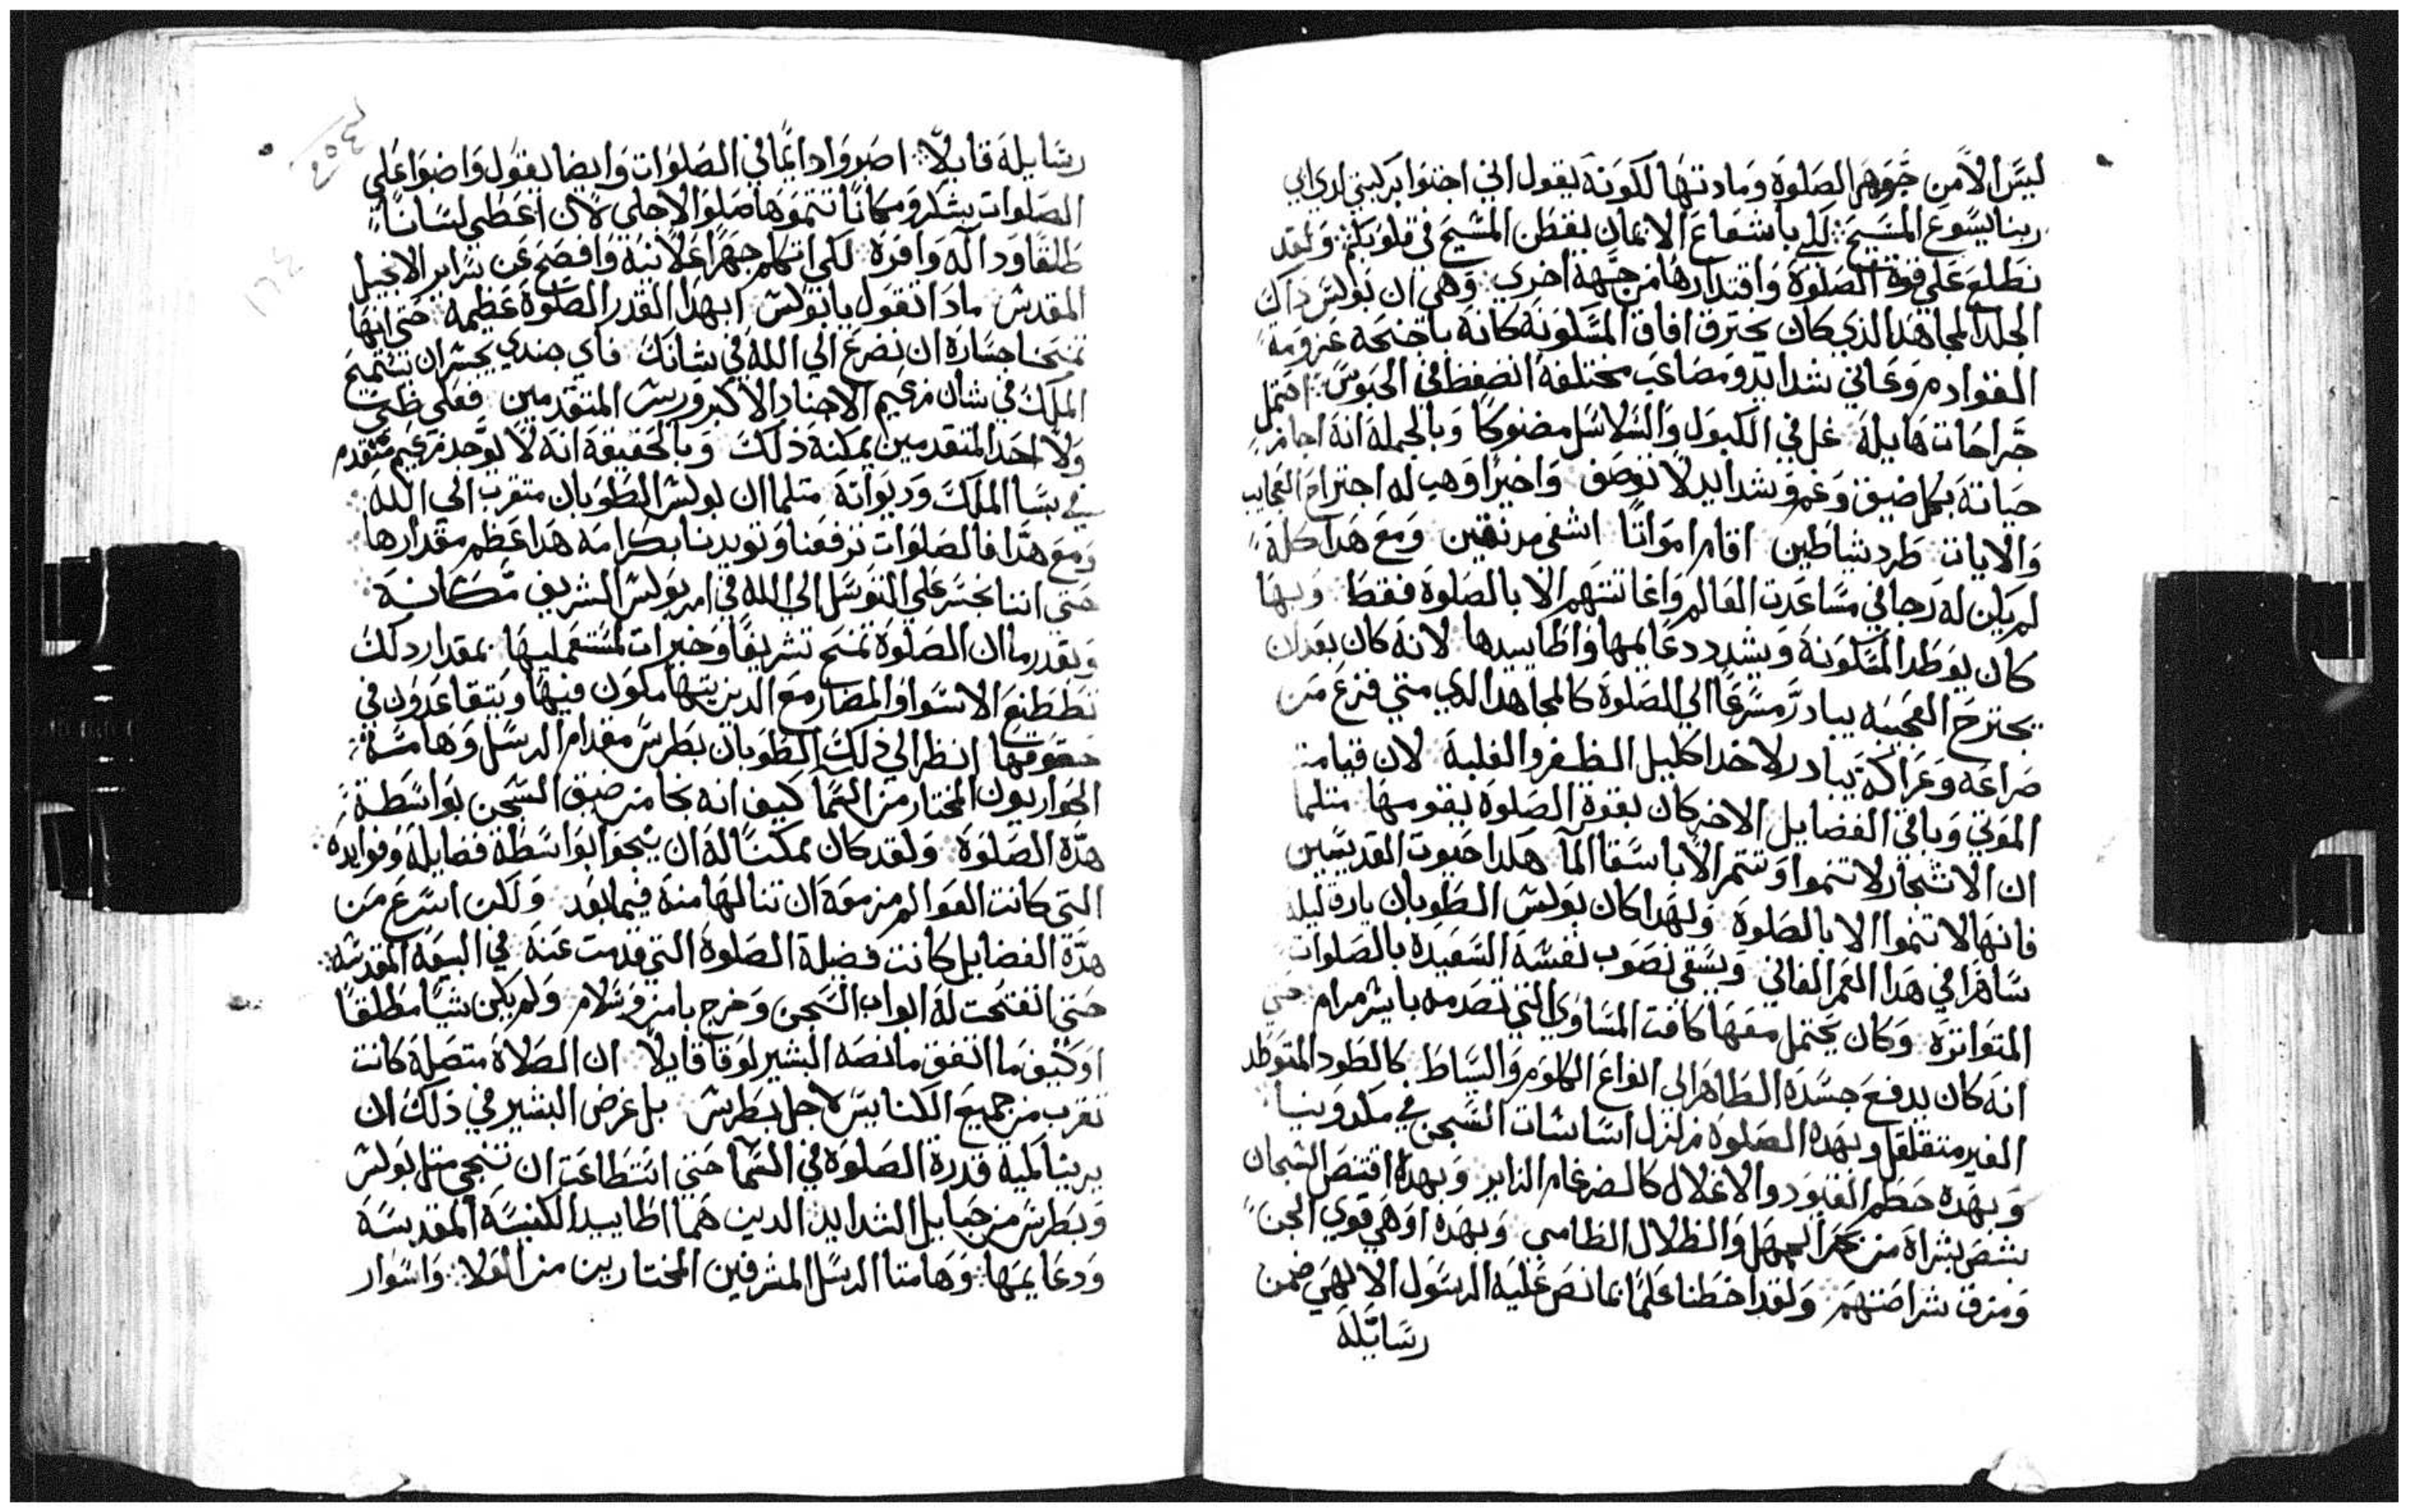 ليس الا من جوهر الصلوة ومادتها لكونه يقول اني اجثوا بركبتي لدي ابي
ربنا يسوع المسيح لكي باشعاع الايمان يقطن المسيح في قلوبكم ولقد
نطلع علي قوة الصلوة واقتدارها من جهة اخري وهي ان بولس داك
الجلد المجاهد الذي كان يخترق افاق المسكونة كانه باجنحه عزومة
الفواده وعاني شدايد ومصاعب مختلفة انضغط في الحبوس احتمل
جراحات هايلة غل في الكبول والسلاسل مضنوكا وبالجملة انه اجاز
حياته بكل ضيق وغم وشدايد لا توصف واخيرا وهب له اجتراح العجايب
والايات طرد شياطين اقام امواتا اشفي مدنفين ومع هدا كله
لم يكن له رجا في مساعدت العالم واغاثتهم الا بالصلوة فقط وبها
كان يوطد المسكونة ويشدد دعايمها واطاييدها لانه كان بعد ان
يجترح العجيبه يبادر مسرعا الي الصلوة كالمجاهد الدي متي فزع من
صراعه وعراكه يبادر لاخد اكليل الظفر والغلبة لان قيامة
الموتي وباقي الفضايل الاخر كان بقوة الصلوة يقومها مثلما
ان الاشجار لا تنموا وتثمر الا باسقا الما هكدا حيوت القديسين
فانها لا تنموا الا بالصلوة ولهدا كان بولس الطوبان يارق ليله
ساهرا في هدا العمر الفاني ويسقي نصوب نفسه السعيدة بالصلوات
المتواترة وكان يحتمل معها كافت المساوي التي تصدمه بايسر مرام حتي
انه كان يدفع جسده الطاهر الي انواع الكلوم والسياط كالطود المتوطد
الغير متقلقل وبهده الصلوة زلزل اساسات السجن في مكدونيا
وبهده حطم القيود والاغلال كالضرغام الزاير وبهدة اقتنص السجان
بشص بشراه من بحر الجهل والظلال الطامي وبهده اوهي قوي الجن
ومزق شراصتهم ولقد احطنا علما بما نص عليه الرسول الالهي ضمن
رسايله
رسايله قايلا اصبروا دايما في الصلوات وايضا يقول واضبوا علي
الصلوات بشكر ومكانا تتموها صلوا لاجلي لان اعطي لسانا
طلقا ودالة وافرة لكي اتكلم جهرا علانية وافصح عن سراير الانجيل
المقدس مادا تقول يا بولس ابهدا القدر الصلوة عظيمة حتي انها
تمنحنا جسارة ان نضرع الي الله في شانك فاي جندي يجسر ان يستميح
الملك في شان زعيم الاجناد الاكبر وريس المتقدمين فعلي ظني
ولا احد المتقدمين يمكنه ذلك وبالحقيقة انه لا يوجد زعيم متقدم
في بسا الملك وديوانه متلما ان بولس الطوبان متقرب الي الله
ومع هدا فالصلوات ترفعنا وتويدنا بكرامه هدا عظم مقدارها
حتي اننا نجسر علي التوسل الي الله في امر بولس الشريف مكانه
وبقدر ما ان الصلوة تمنح تشريفا وخيرات لمستعمليها بمقدار دلك
تططنع الاسوا والمضار مع الدين يتهاملون فيها ويتقاعدون في
حقوقها انظر الي ذلك الطوبان بطرس مقدام الرسل وهامة
الحواريون المختار من السما كيف انه نجا من ضيق السجن بواسطة
هدة الصلوة ولقد كان ممكنا له ان ينجوا بواسطة فضايله وفوايده
التي كانت العوالم مزمعة ان تنالها منه فيما بعد ولكن اسرع من
هدة الفضايل كانت فضيلة الصلوة التي قدمت عنه في البيعه المقدسه
حتي انفتحت له ابواب السجن وخرج بامن وسلام ولم يكن شيا مطلقا
اوكيف ما اتفق ما نصه البشير لوقا قايلا ان الصلاة متصلة كانت
تقرب من جميع الكنايس لاجل بطرس بل غرض البشير في ذلك ان
يرينا كمية قدرة الصلوة في السما حتي استطاعت ان تنجي متل بولس
وبطرس من حبايل الشدايد الدين هما اطاييد الكنيسة المقدسة
ودعايمها وهامتا الرسل المشرفين المختارين من العلا واسوار